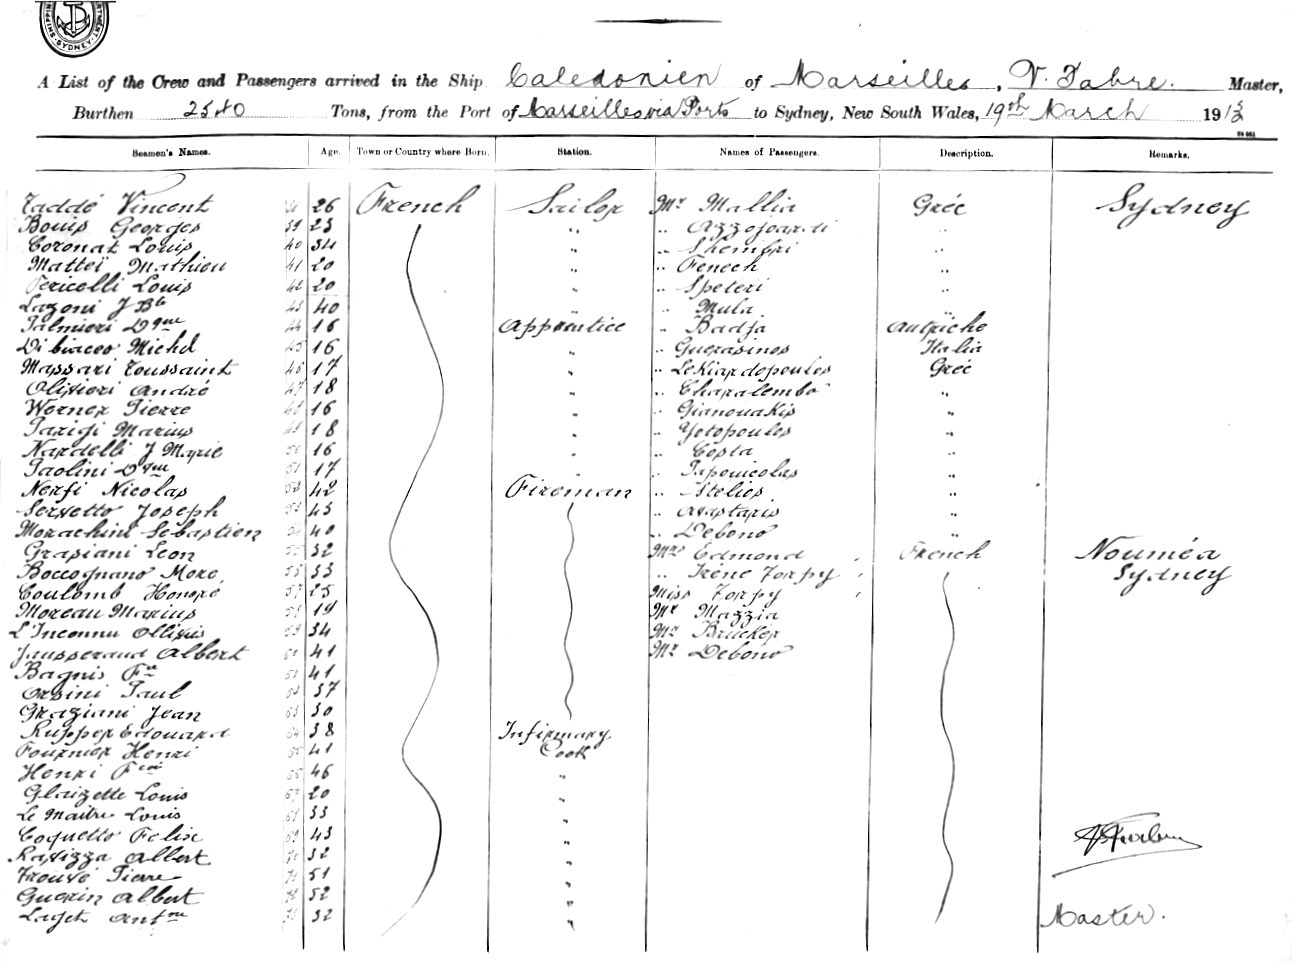 SYDNEY
A List of the Crew and Passengers arrived in the Ship Caledonien of Marseilles, V. Fabre. Master,
Burthen Tons, from the Port of Marseilles via Ports to Sydney, New South Wales, 19th March 1913
Seamen's Names. Age. Town or Country where Born. Station. Names of Passengers. Description. Remarks.
Taddé Vincent 26 French Sailor Mr Mallia Gréc Sydney
Bouis Georges 39 23 " " Azzopardi "
Coronat Louis 40 34 " " Shembri "
Mattei Mathieu 41 20 " " Fenech "
Pericelli Louis 42 20 " " Speteri "
Lazoni J Bte 43 40 " " Mula "
Palmieri Dque 44 16 Apprentice " Badja Autriche
Dibiacco Michel 45 16 " " Guerasinos Italia
Massari Toussaint 46 17 " " Lekiardopoulos Gréc
Olivieri André 47 18 " " Charalembo "
Werner Pierre 48 16 " " Gianouakis "
Parigi Marius 49 18 " " Yotopoulos "
Nardelli J Marie 50 16 " " Costa "
Paolini Dque 51 17 " " Paponicolas "
Nerfi Nicolas 52 42 Fireman " Stelios "
Servetto Joseph 53 43 " Anastaris "
Morachini Sebastien 40 " Debono "
Graziani Leon 32 Mrs Edmond French Nouméa
Boccognano More 56 33 " Irène Torpy Sydney
Coulomb Honoré 57 25 Miss Torpy
Moreau Marius 58 19 Mr Mazzia
L'Inconnu Ollivis 59 34 Mr Brucker
Jausseraud Albert 60 41 Mr Debono
Bagnis Fs 61 41
Orsini Paul 37
Graziani Jean 63 30
Rupper Edouard 64 38 Infirmary
Fournier Henri 65 41 Cook
Henri 46 "
Glaizette Louis 67 20 "
Le Maitre Louis 68 33 "
Coquetto Felix 69 43 "
Ravizza Albert 70 32 "
Trouvé Pierre 71 51 "
Guerin Albert 72 52 "
Laget Antne 73 32 " Master.